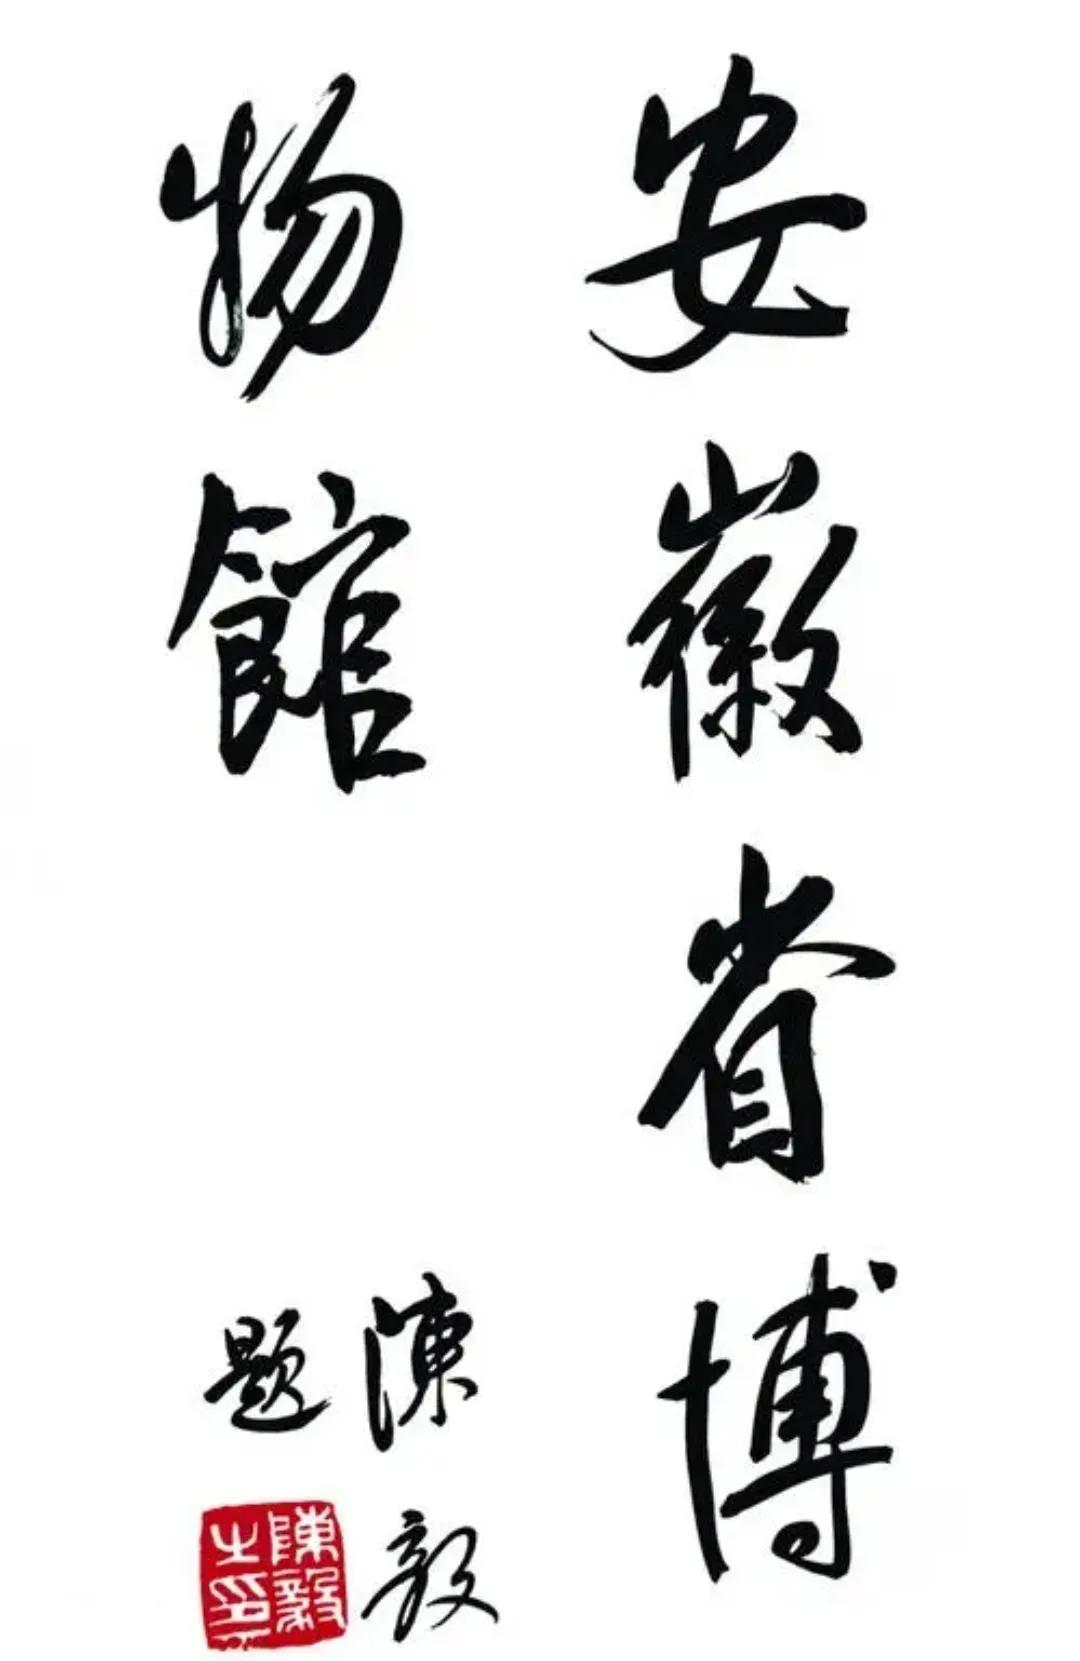 安徽省博
物館
陳毅
題
陳毅
之印